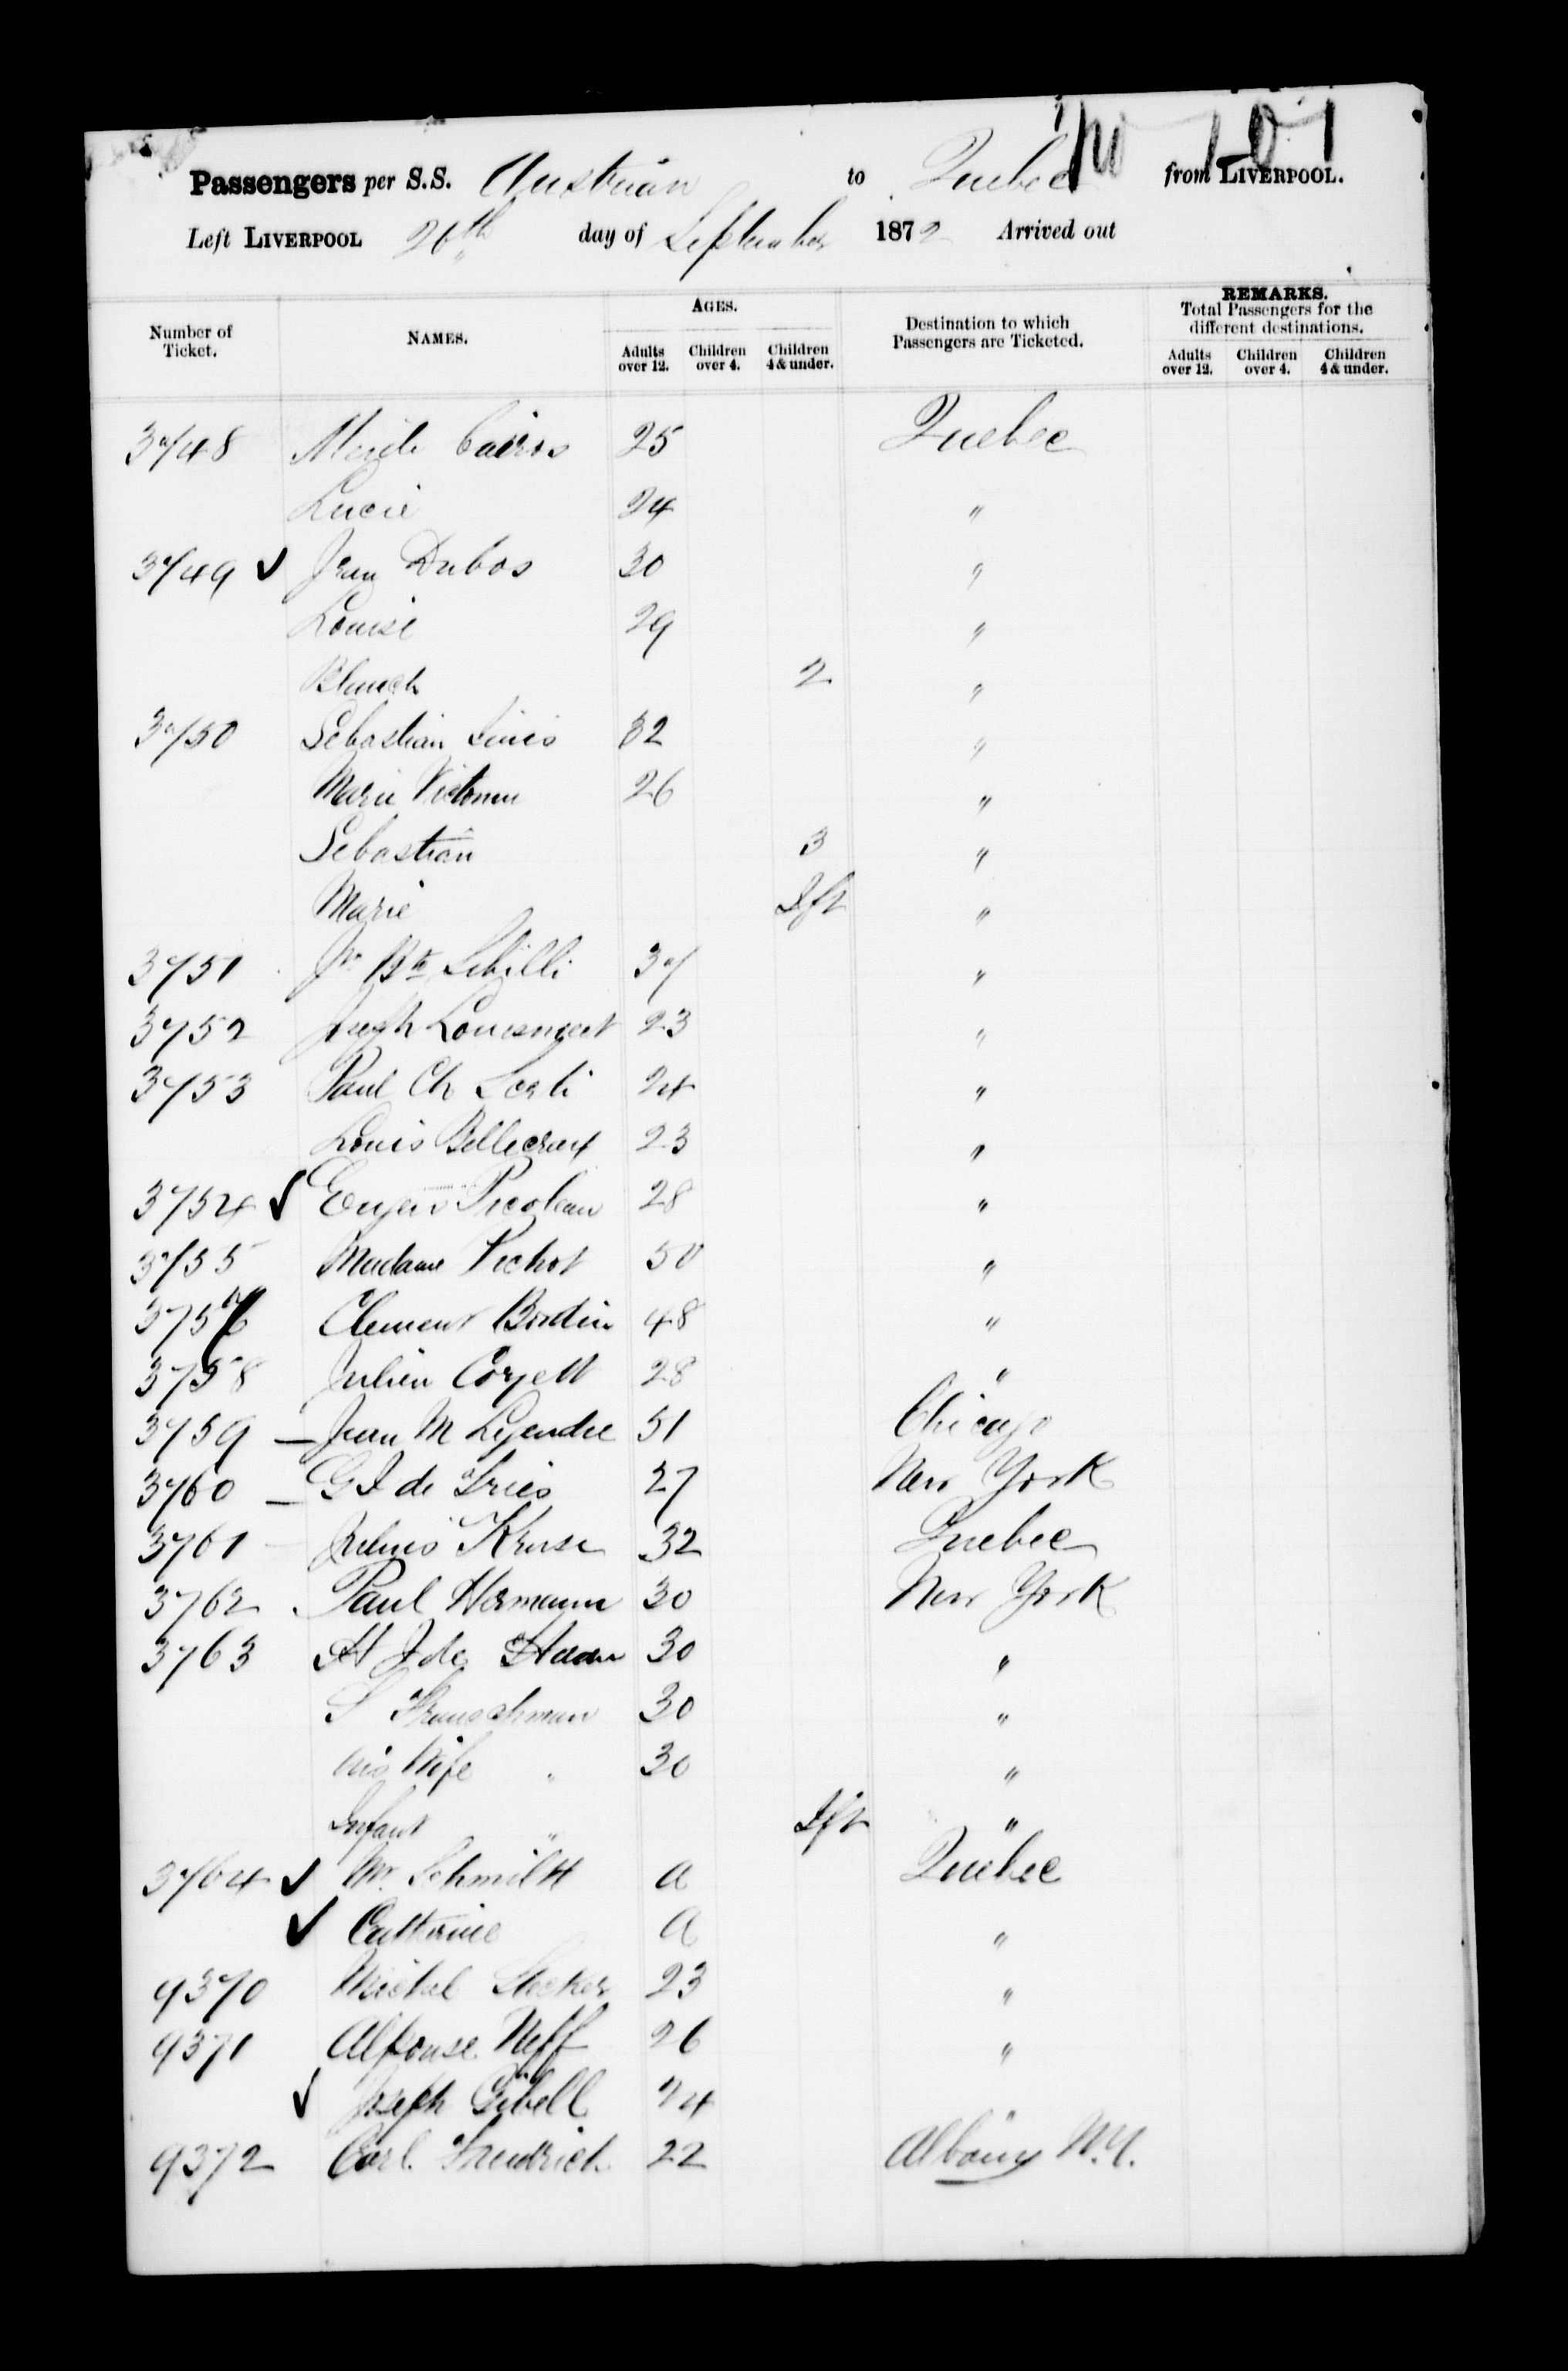 No 107
Passengers per S.S. Austrian to Quebec from LIVERPOOL.
Left LIVERPOOL 26th day of September 1872 Arrived out
Number of Ticket. NAMES. AGES. Destination to which Passengers are Ticketed. REMARKS. Total Passengers for the different destinations.
Adults over 12. Children over 4. Children 4 & under. Adults over 12. Children over 4. Children 4 & under.
3748 25 Quebec
Lucie 24 "
3749 ✓ Jean Dubos 30 "
Louise 29 "
Blanch 2 "
3750 Sebastian 32 "
Marie 26 "
Sebastian 3 "
Marie Ift "
3751 Jn Bte 37 "
3752 23 "
3753 Paul Ch 24 "
Louis 23 "
3754 ✓ 28 "
3755 Madame Pichot 50 "
3757 Clement Bordin 48 "
3758 Julien 28 "
3759 — Jean M Legendre 51 Chicago
3760 — G I de Fries 27 New York
3761 Julius Kruse 32 Quebec
3762 Paul Hermann 30 New York
3763 30 "
S 30 "
his Wife " 30 "
Infant " Ift "
3764 ✓ Mr. Schmidt a Quebec
✓ Catterine a "
9370 Michel 23 "
9371 Alfonse Neff 26 "
✓ Joseph 24 "
9372 Carl Freidrich 22 Albany N.Y.